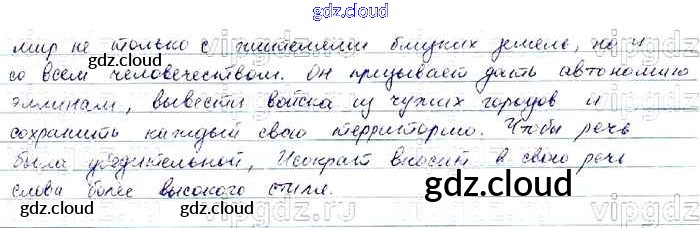 gdz.cloud
мир не только с жителями близких земель, но и
со всем человечеством. Он призывает дать автономию
эллинам, вывести войска из чужих городов и
сохранить каждый свою территорию. Чтобы речь
была убедительной, Исократ вносит в свою речь
слова более высокого стиля.
gdz.cloud
gdz.cloud
gdz.cloud
gdz.cloud
gdz.cloud
vipgdz.ru
vipgdz.ru